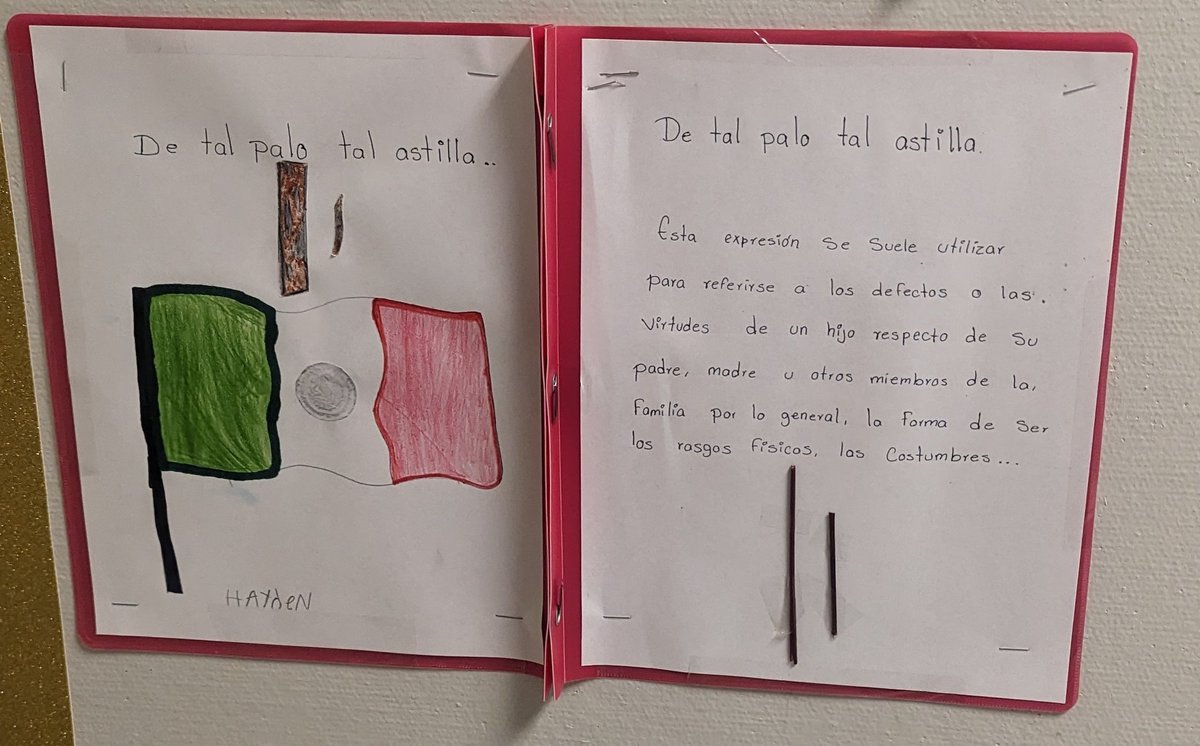 De tal palo tal astilla..
HAYDEN
De tal palo tal astilla.
Esta expresión se suele utilizar
para referirse a los defectos o las.
virtudes de un hijo respecto de su
padre, madre u otros miembros de la,
familia por lo general, la forma de ser
los rasgos físicos, las costumbres...